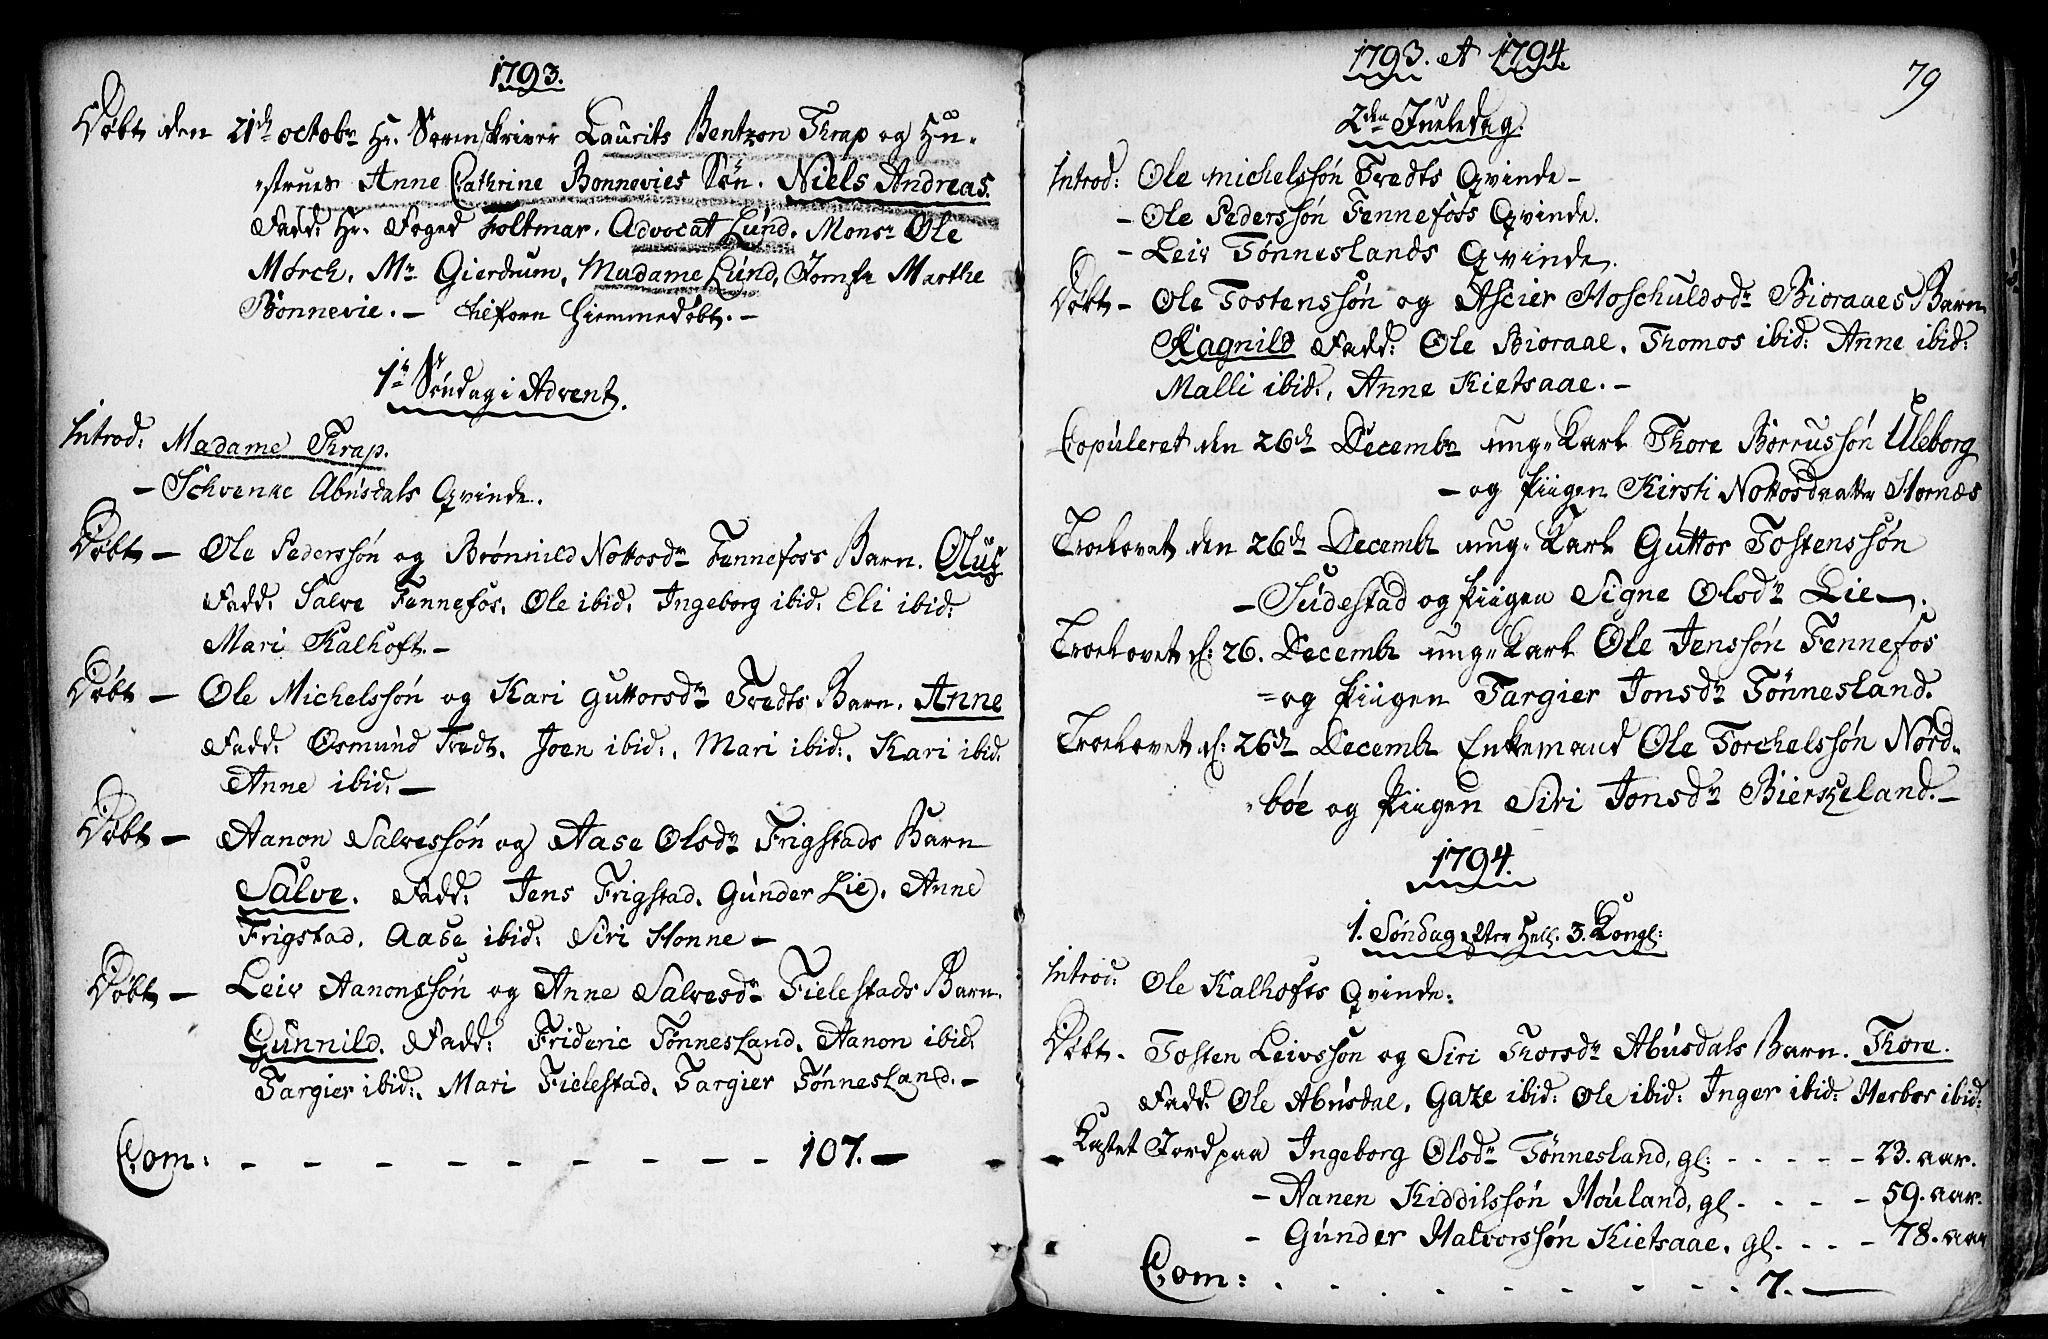 1793.
Døbt den 21de octobr Hr. Sorenskriver Laurits Bentzon Thrap og Hu-
strues Anne Cathrine Bonnevies Søn. Niels Andreas.
Fadd: Hr. Foged Foltmar. Advocat Lund. Monsr Ole
Mørch. Mr Gierdrum. Madame Lund, Jomfr Marthe
Bonnevie. — tilforn Hiemmedøbt. —
1te Søndag i Advent.
Introd: Madame Thrap.
— Schvenae Abusdals Qvinde.
Døbt — Ole Pederssøn og Brønnild Nottosdr Fennefoss Barn. Oluf
Fadd. Salve Fennefos. Ole ibid. Ingeborg ibid. Eli ibid.
Mari Kalhoft. —
Døbt — Ole Michelssøn og Kari Guttorsdr Tvedts Barn. Anne
Fadd. Osmund Tvedt. Joen ibid:. Mari ibid:. Kari ibid.
Anne ibid. —
Døbt — Aanon Salvessøn og Aase Olsdr Frigstads Barn
Salve. Fadd. Jens Frigstad. Gunder Lie. Anne
Frigstad. Aase ibid: Siri Honne —
Døbt — Leiv Aanonssøn og Anne Salvesdr Fielestads Barn.
Gunnild. Fadd: Frideric Tønnesland. Aanon ibid.
Targier ibid:. Mari Fielestad. Targier Tønnesland. —
Com: - - - - - - - - 107. —
1793. et 1794.
79
2den Juledag.
Introd: Ole Michelssøn Tvedts Qvinde —
— Ole Pederssøn Fennefoss Qvinde.
— Leiv Tønneslands Qvinde.
Døbt — Ole Tostenssøn og Ascier Hoschuldsdr Bioraaes Barn
Ragnild Fadd: Ole Bioraae. Thomos ibid: Anne ibid:
Malli ibid:, Anne Kietsaae. —
Copuleret den 26de Decembr ung-Karl Thore Borrussøn Uleborg
— og Piigen Kirsti Nottosdatter Hornæs
Trolovet den 26de Decembr ung-Karl Guttor Tostenssøn
— Sudestad og Piigen Signe Olsdr Lie —.
Trolovet d: 26. Decembr ung-Karl Ole Jenssøn Fennefos
— og Piigen Targier Jonsdr Tønnesland.
Trolovet d: 26de Decembr Enkemand Ole Torchelssøn Nord-
bøe og Piigen Siri Jonsdr Bierheland. —
1794.
1. Søndag efter Hell. 3. Kongl:
Introd: Ole Kalhofts Qvinde:
Døbt. Tosten Leivssøn og Siri Thorsdr Abusdals Barn. Thore.
Fadd. Ole Abusdal. Gaze ibid: Ole ibid: Inger ibid: Herbor ibid:
Kastet Jord paa Ingeborg Olsdr Tønnesland, gl: - - - - 23. aar.
— Aanen Kiddilssøn Houland, gl - - - - 59. aar.
— Gunder Halvorssøn Kietsaae. gl. - - - 78. aar
Com: - - - - - - - - 7. —